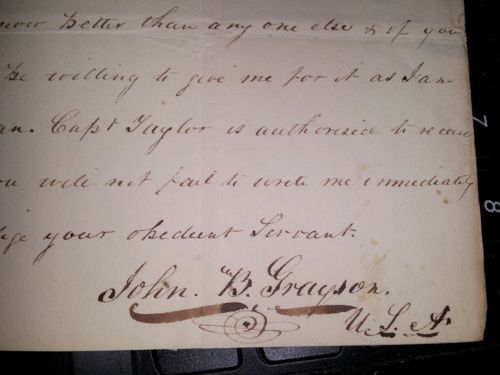 now better than any one else & if you
be willing to give me for it as I am
an. Capt Taylor is authorised to receive
ou will not fail to write me immediately
lige your obedient Servant.
John. B. Grayson.
U. S. A.
7
8